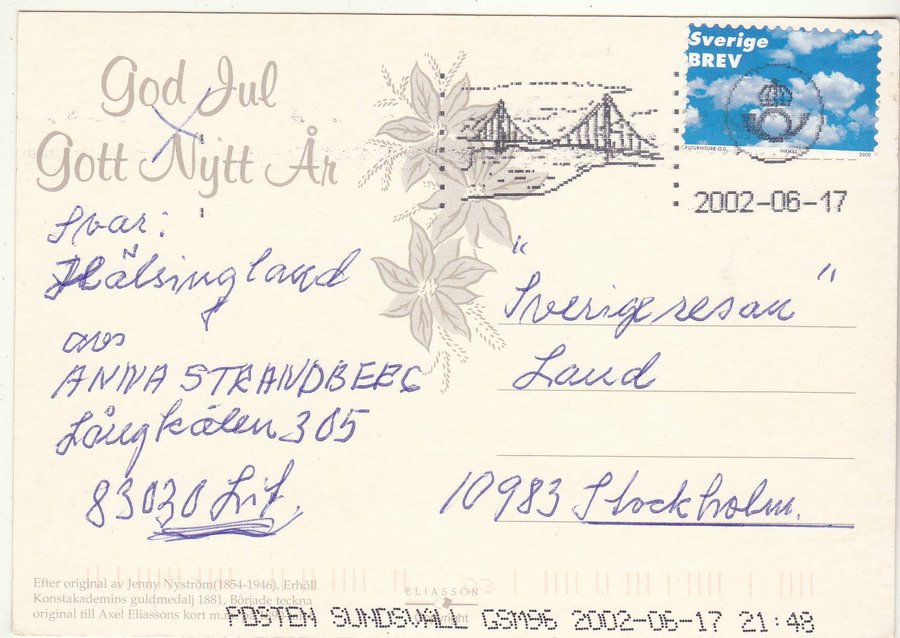 God Jul
Gott Nytt År
Sverige
BREV
FUTURNITURE O.G.
2000
2002-06-17
Svar:
Hälsingland
avs
ANNA STRANDBERG
Långkälen 305
83030 Lit.
"Sverigeresan"
Land
10983 Stockholm.
Efter original av Jenny Nyström(1854-1946). Erhöll
Konstakademins guldmedalj 1881, Började teckna
original till Axel Eliassons kort m.m.
ELIASSON
Copyright
POSTEN SUNDSVALL GSM96 2002-06-17 21:48